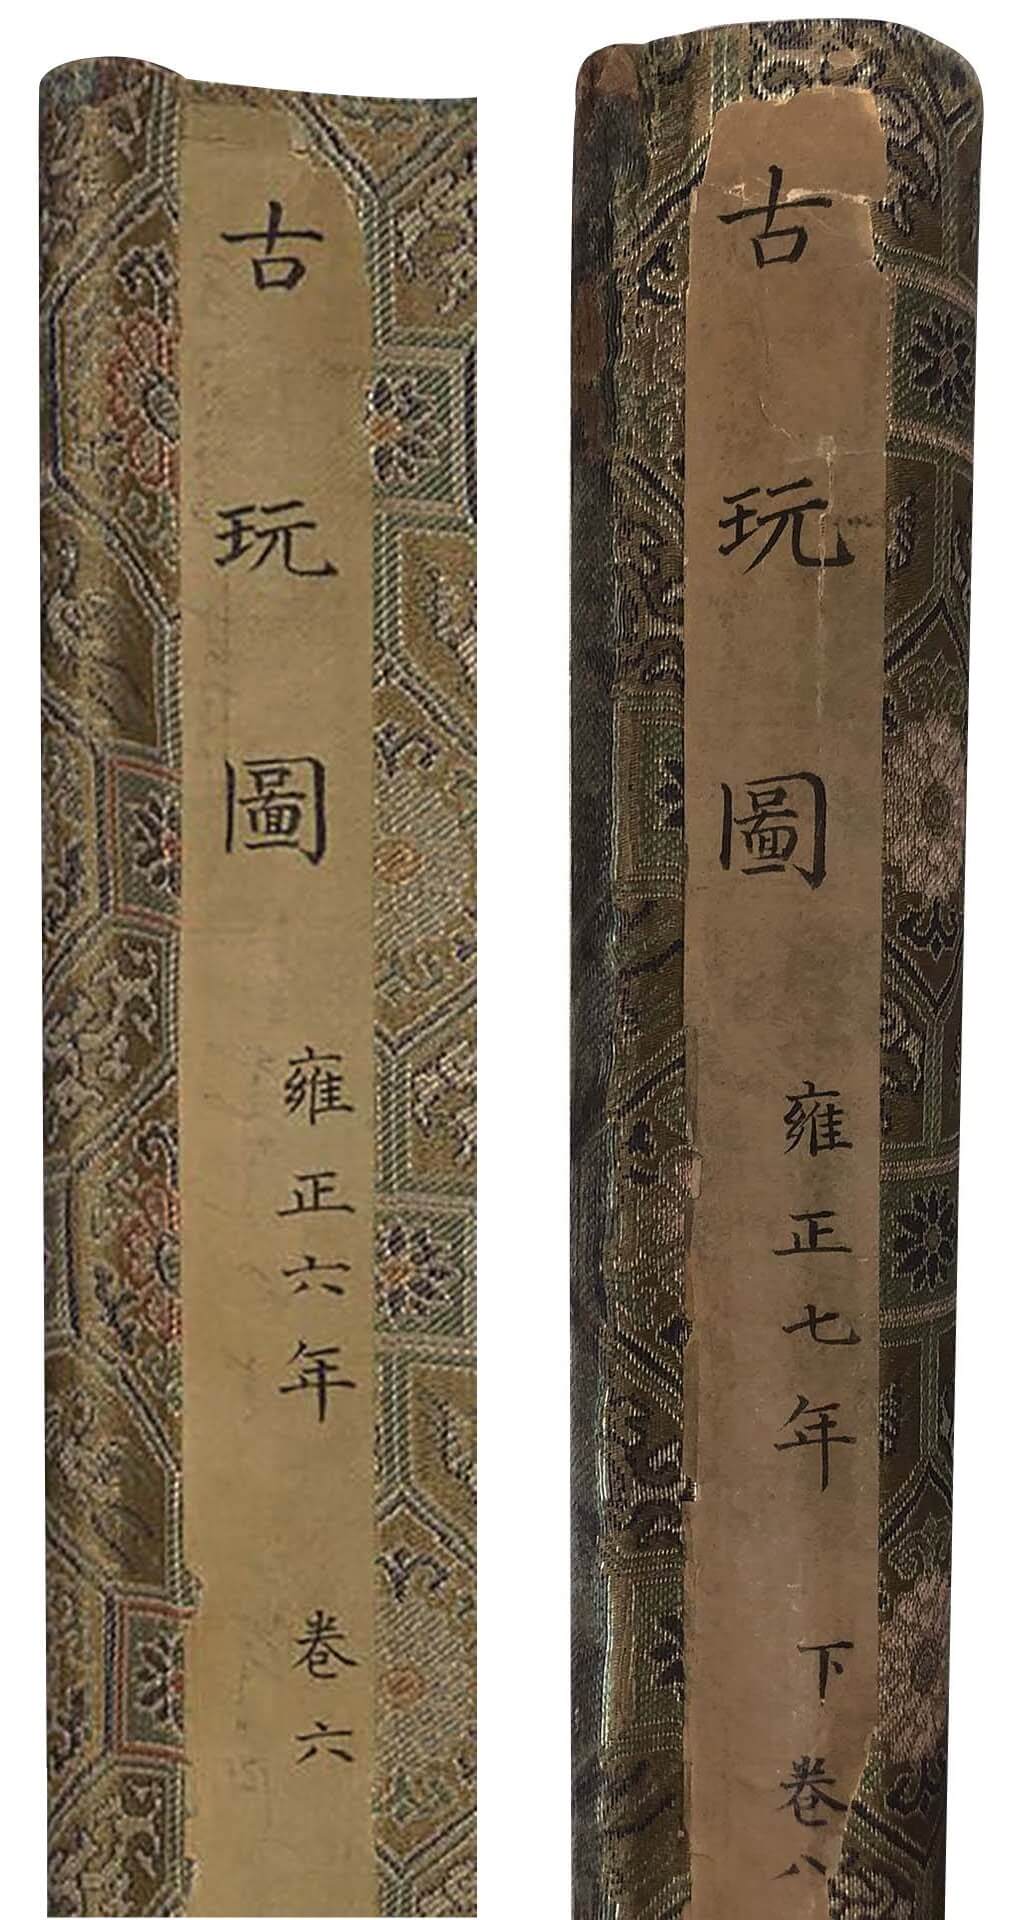 古玩圖
雍正六年
卷六
古玩圖
雍正七年
下
卷八